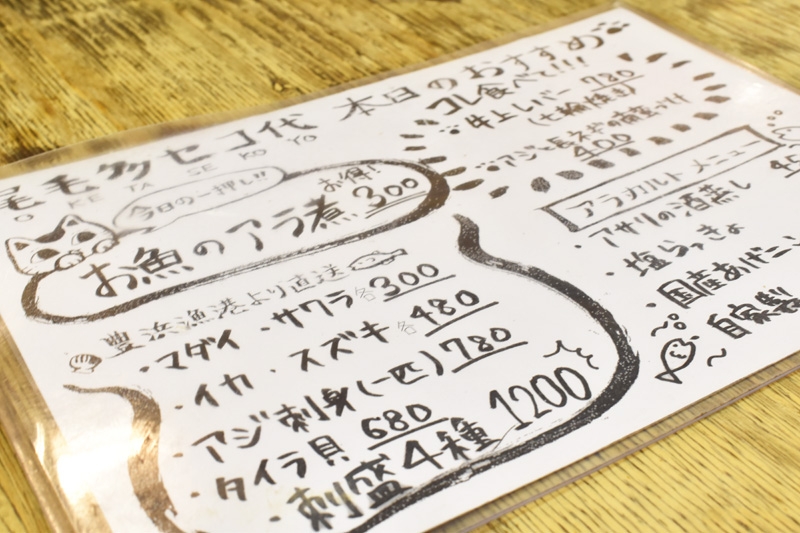 尾毛多セコ代 本日のおすすめ
O KE TA SE KO YO
今日の一押し!!
お得!
お魚のアラ煮 300
豊浜漁港より直送
・マダイ・サワラ 各300
・イカ・スズキ 各480
・アジ刺身(一匹) 780
・タイラ貝 680
・刺盛4種 1200
コレ食べて!!!
牛上レバー 780
(七輪焼き)
400
アラカルトメニュー
・アサリの酒蒸し
・塩らっきょ
・国産あげ
自家製